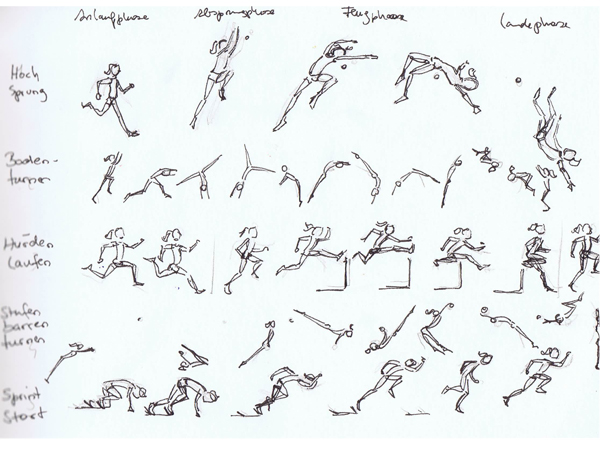 Anlaufphase Absprungphase Flugphase Landephase
Hoch
Sprung
Boden-
turnen
Hürden
Laufen
Stufen
barren
turnen
Sprint
Start